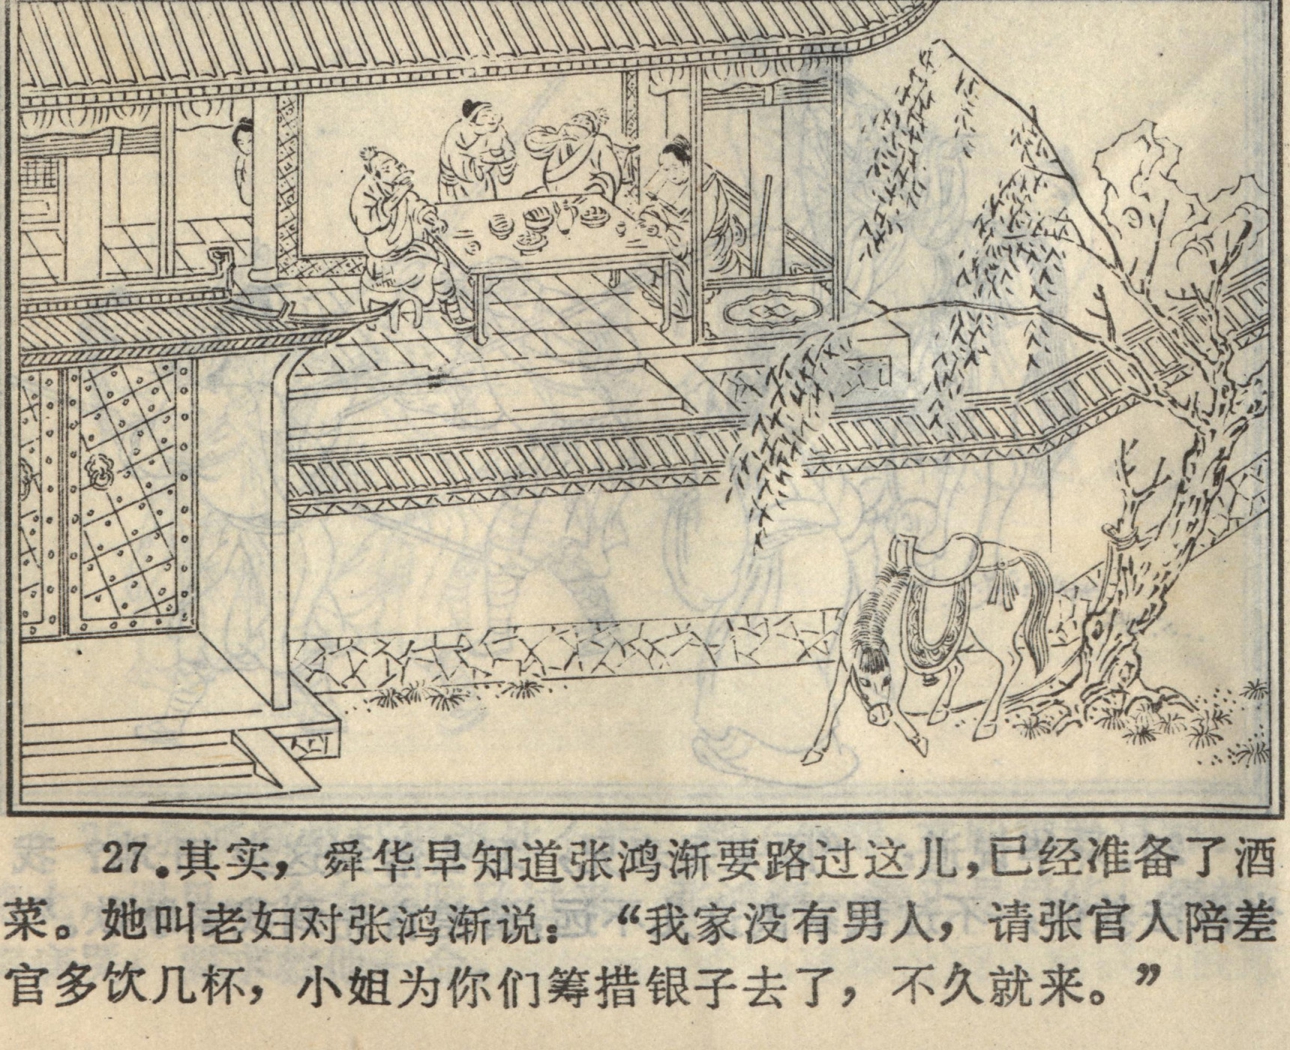 27.其实，舜华早知道张鸿渐要路过这儿，已经准备了酒
菜。她叫老妇对张鸿渐说：“我家没有男人，请张官人陪差
官多饮几杯，小姐为你们筹措银子去了，不久就来。”